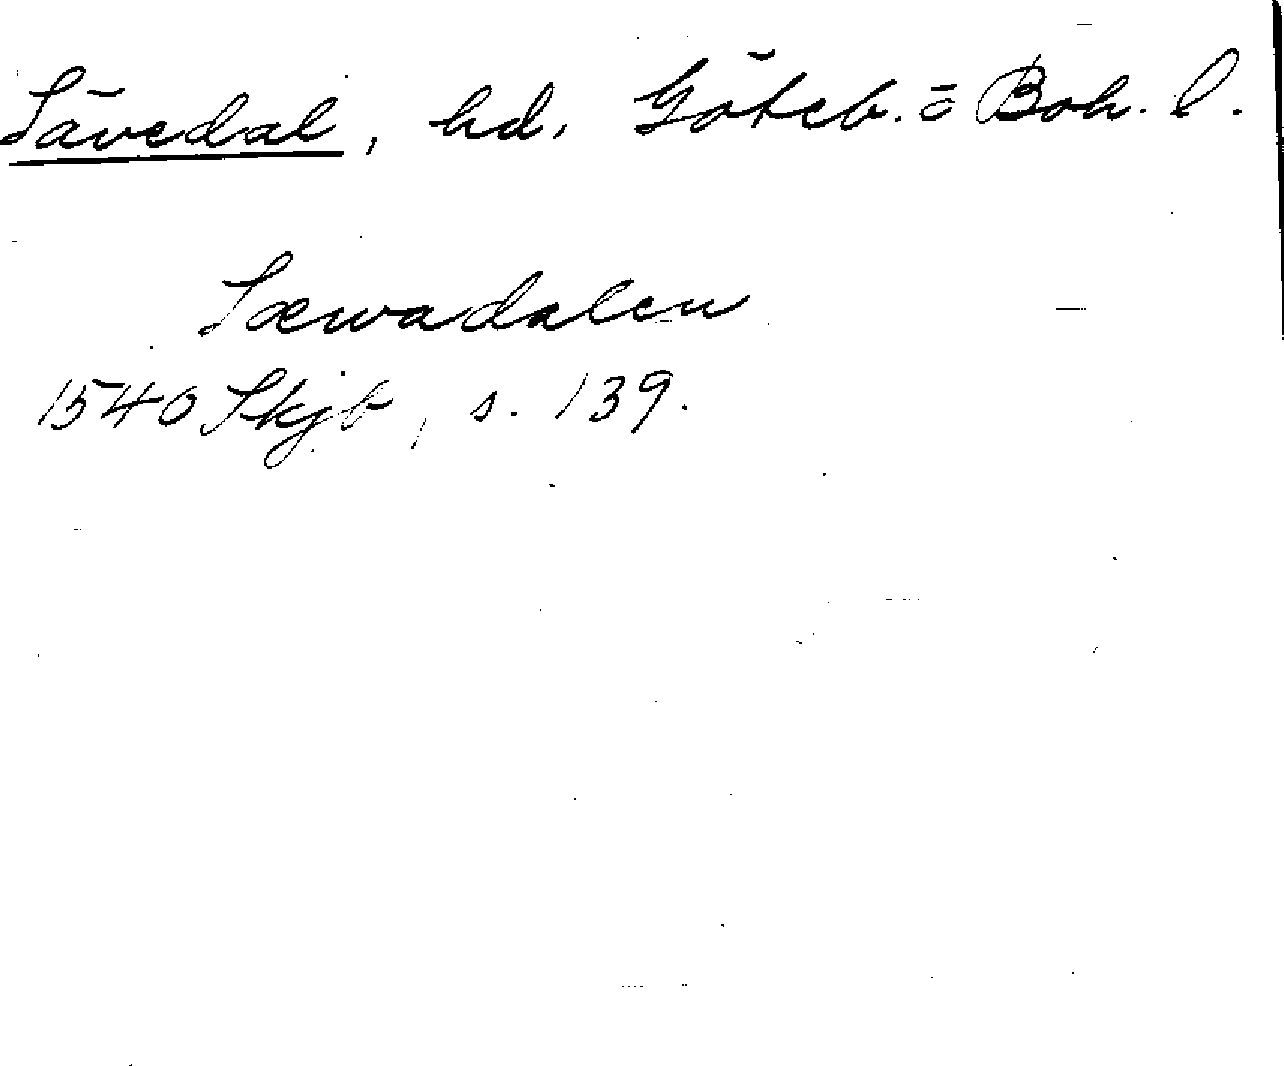 Sävedal, hd, Göteb. o Boh. l.
Sæwadalen
1540 Skjb, s. 139.